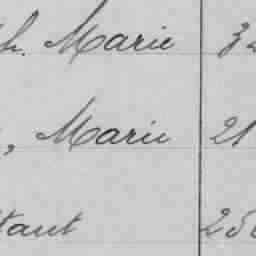 h. Marie 32
, Marie 21
tant 250